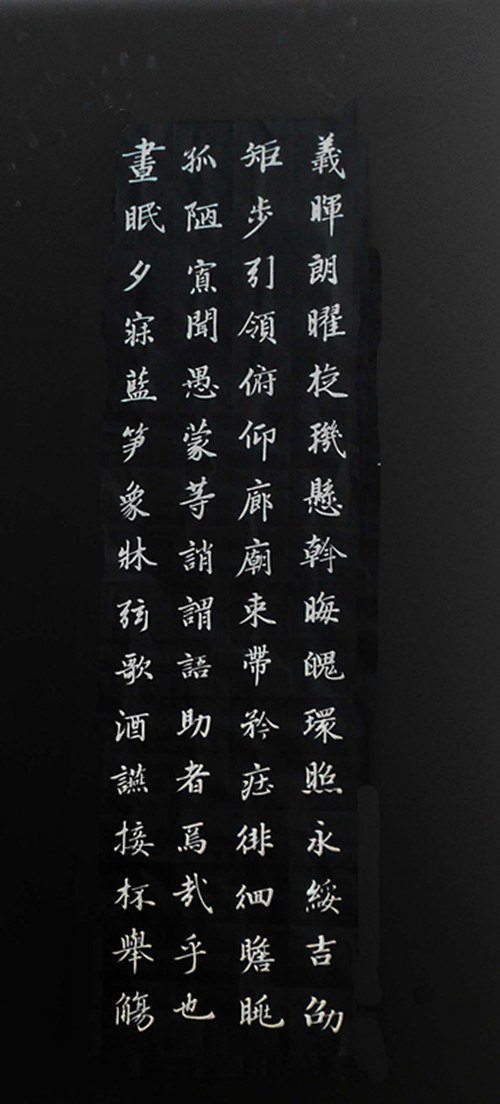 義暉朗曜旋璣懸斡晦魄環照永綏吉劭
矩步引領俯仰廊廟束帶矜莊徘徊瞻眺
孤陋寡聞愚蒙等誚謂語助者焉哉乎也
晝眠夕寐藍笋象牀弦歌酒讌接杯舉觴